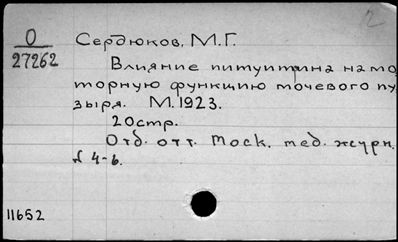 2
О
27262
Сердюков, М.Г.
Влияние питуитрина на мо-
торную функцию мочевого пу-
зыря. М. 1923.
20стр.
Отд. отт. Моск. мед. журн.
№ 4-6.
11652